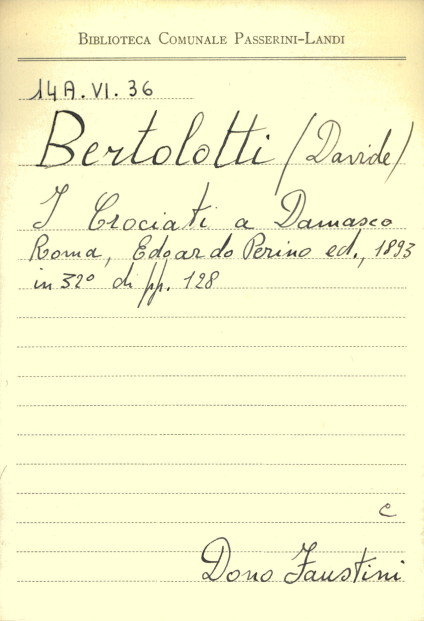 BIBLIOTECA COMUNALE PASSERINI-LANDI
14A.VI.36
Bertolotti (Davide)
I Crociati a Damasco
Roma, Edoardo Perino ed., 1893
in 32º di pp. 128
c
Dono Faustini